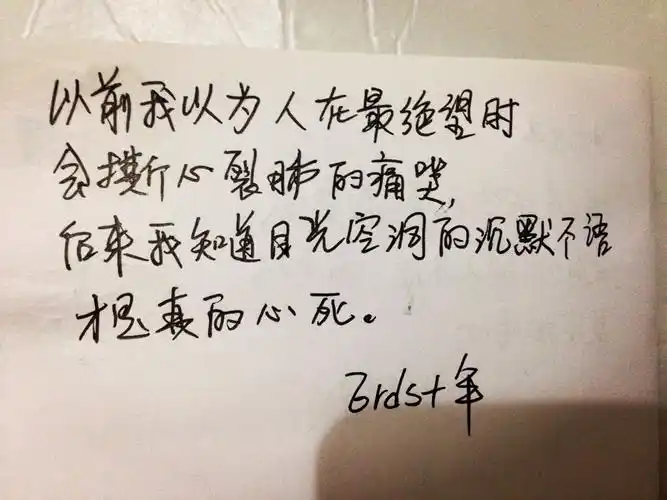 以前我以为人在最绝望时
会撕心裂肺的痛哭，
后来我知道目光空洞的沉默不语
才是真的心死。